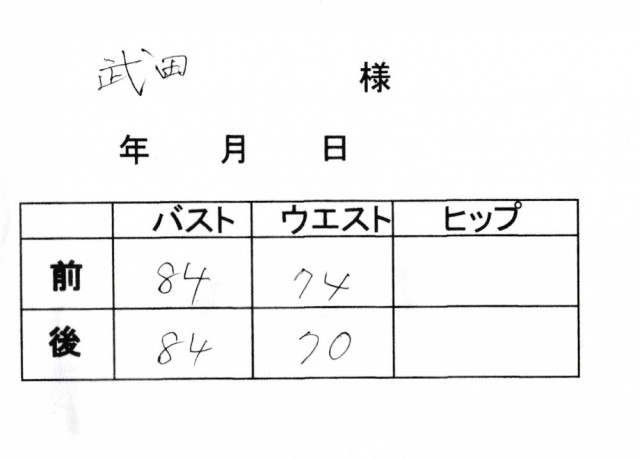 武田 様
年 月 日
バスト ウエスト ヒップ
前 84 74
後 84 70